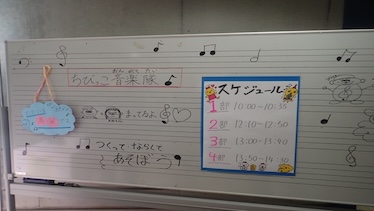 ちびっこ音楽隊
おんがくたい
まってるよ
つくって・ならして
あそぼう
スケジュール
1部 10:00~10:35
2部 12:10~12:50
3部 13:00~13:40
4部 13:50~14:30